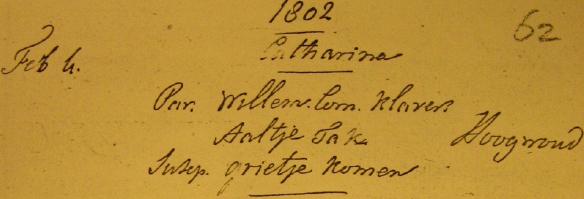 1802
62
Catharina
Feb 4.
Par. Willem. Corn. Klaver.
Aaltje Tak Hoogwoud
Susp. grietje Komen